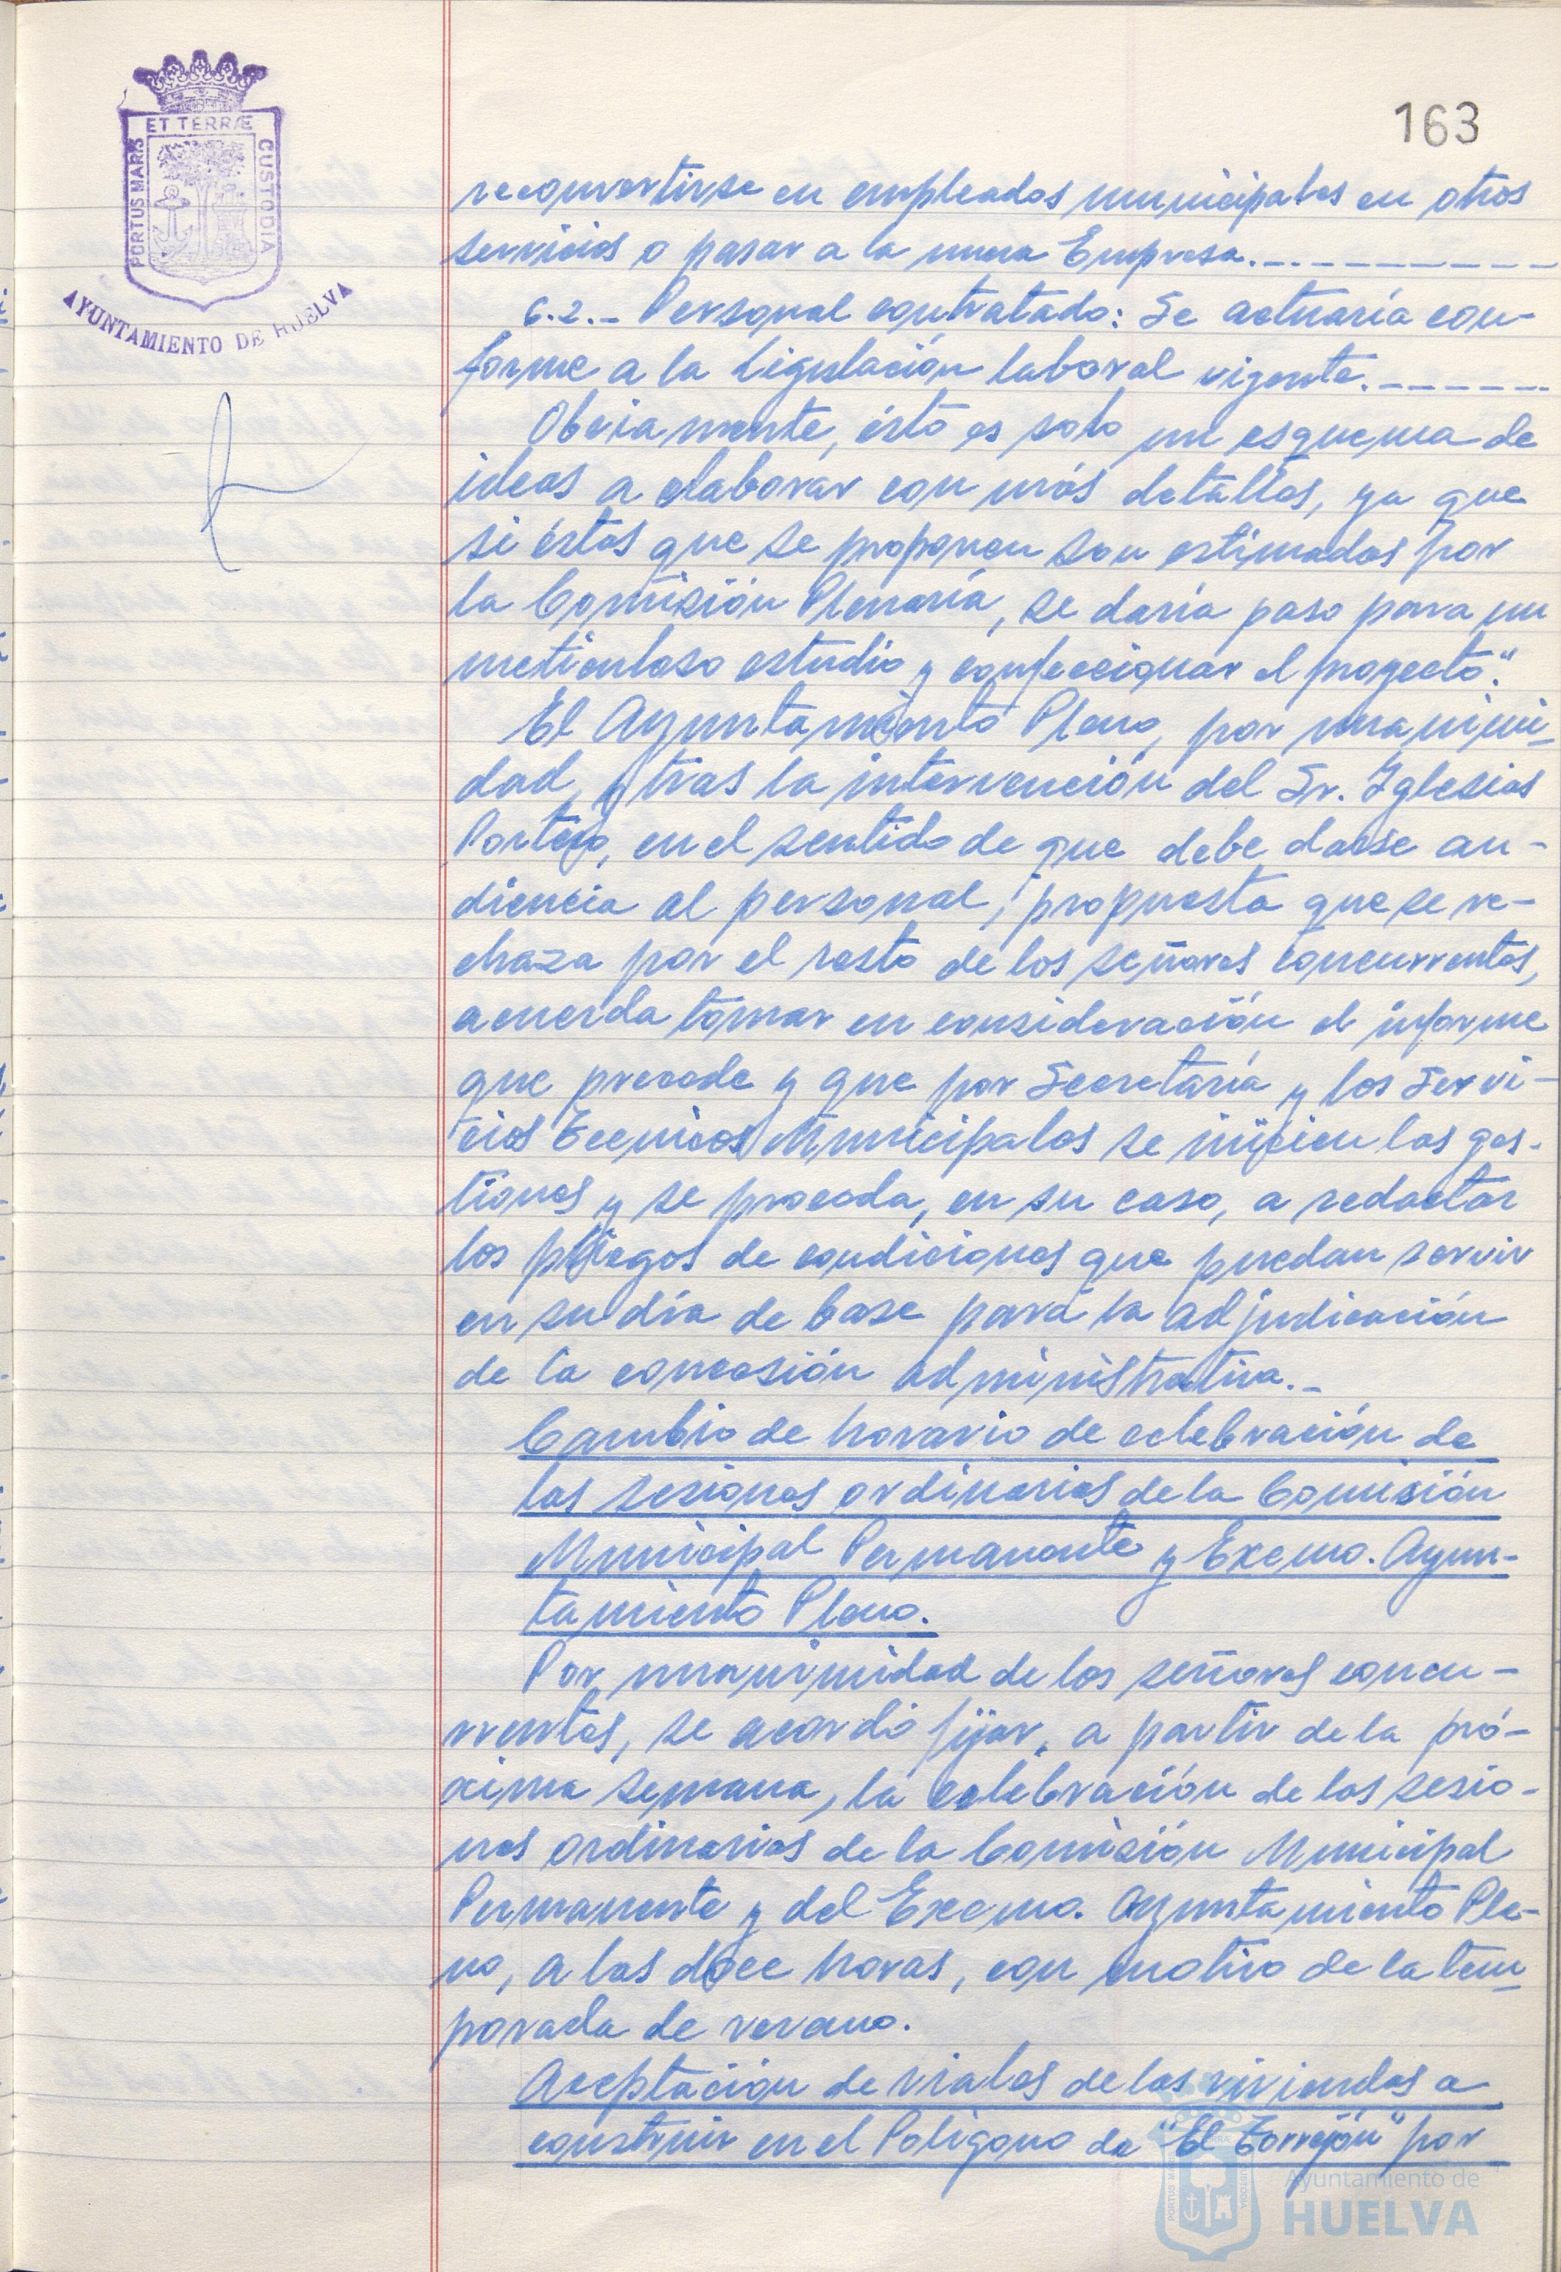 163
ET TERRÆ
PORTUS MARIS
CUSTODIA
AYUNTAMIENTO DE HUELVA
reconvertirse en empleados municipales en otros
servicios o pasar a la nueva Empresa.
6.2.- Personal contratado: Se actuaría con-
forme a la Legislación laboral vigente.
Obviamente, ésto es solo un esquema de
ideas a elaborar con más detalles, ya que
si éstas que se proponen son estimadas por
la Comisión Plenaria, se daría paso para un
meticuloso estudio y confeccionar el proyecto".
El Ayuntamiento Pleno, por unanimi-
dad, y tras la intervención del Sr. Iglesias
Portero, en el sentido de que debe darse au-
diencia al personal, propuesta que se re-
chaza por el resto de los señores concurrentes,
acuerda tomar en consideración el informe
que precede y que por Secretaría y los Servi-
cios Tecnicos Municipales se inicien las ges-
tiones y se proceda, en su caso, a redactar
los pliegos de condiciones que puedan servir
en su día de base para la adjudicación
de la concesión administrativa.-
Cambio de horario de celebración de
las sesiones ordinarias de la Comisión
Municipal Permanente y Excmo. Ayun-
tamiento Pleno.
Por unanimidad de los señores concu-
rrentes, se acordó fijar, a partir de la pró-
xima semana, la celebración de las sesio-
nes ordinarias de la Comisión Municipal
Permanente y del Excmo. Ayuntamiento Ple-
no, a las doce horas, con motivo de la tem-
porada de verano.
Aceptación de viales de las viviendas a
construir en el Polígono de "El Torrejón" por
Ayuntamiento de
HUELVA